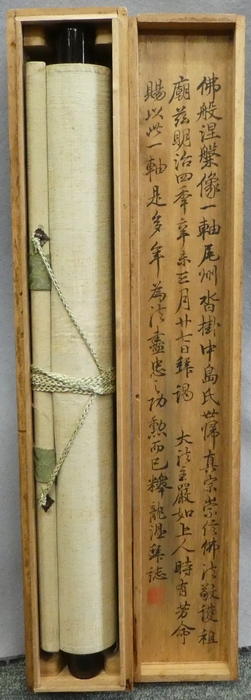 佛般涅槃像一軸尾州沓掛中島氏世帰真宗崇信佛法敬護祖
廟茲明治四季辛未三月廿七日拜謁 大法主嚴如上人時有芳命
賜以此一軸是多年為法盡忠之功勲而已釋龍温拜誌